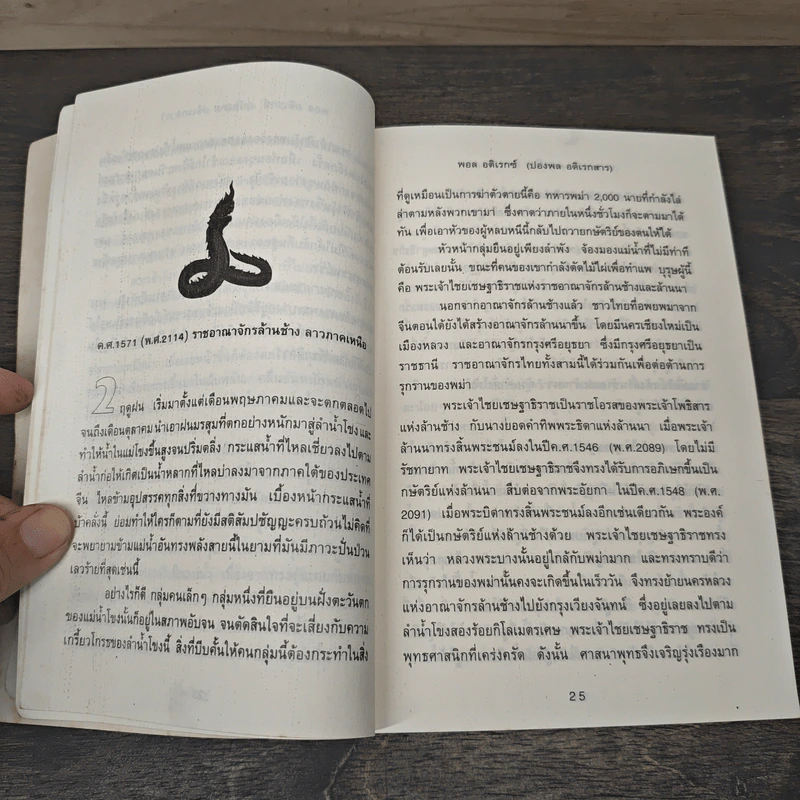 ค.ศ.1571 (พ.ศ.2114) ราชอาณาจักรล้านช้าง ลาวภาคเหนือ
2
ฤดูฝน เริ่มมาตั้งแต่เดือนพฤษภาคมและจะตกตลอดไป
จนถึงเดือนตุลาคม นำเอาฝนมรสุมที่ตกอย่างหนักมาสู่ลำน้ำโขง และ
ทำให้น้ำในแม่โขงขึ้นสูงจนปริ่มตลิ่ง กระแสน้ำที่ไหลเชี่ยวลงไปตาม
ลำน้ำก่อให้เกิดเป็นน้ำหลากที่ไหลบ่าลงมาจากภาคใต้ของประเทศ
จีน ไหลข้ามอุปสรรคทุกสิ่งที่ขวางทางมัน เบื้องหน้ากระแสน้ำที่
บ้าคลั่งนี้ ย่อมทำให้ใครก็ตามที่ยังมีสติสัมปชัญญะครบถ้วนไม่คิดที่
จะพยายามข้ามแม่น้ำอันทรงพลังสายนี้ในยามที่มันมีภาวะปั่นป่วน
เลวร้ายที่สุดเช่นนี้
อย่างไรก็ดี กลุ่มคนเล็กๆ กลุ่มหนึ่งที่ยืนอยู่บนฝั่งตะวันตก
ของแม่น้ำโขงนั้นก็อยู่ในสภาพอับจน จนตัดสินใจที่จะเสี่ยงกับความ
เกรี้ยวโกรธของลำน้ำโขงนี้ สิ่งที่บีบคั้นให้คนกลุ่มนี้ต้องกระทำในสิ่ง
พอล อดิเรกซ์ (ปองพล อดิเรกสาร)
ที่ดูเหมือนเป็นการฆ่าตัวตายนี้คือ ทหารพม่า 2,000 นายที่กำลังไล่
ล่าตามหลังพวกเขามา ซึ่งคาดว่าภายในหนึ่งชั่วโมงก็จะตามมาได้
ทัน เพื่อเอาหัวของผู้หลบหนีนี้กลับไปถวายกษัตริย์ของตนให้ได้
หัวหน้ากลุ่มยืนอยู่เพียงลำพัง จ้องมองแม่น้ำที่ไม่มีท่าที
ต้อนรับเลยนั้น ขณะที่คนของเขากำลังตัดไม้ไผ่เพื่อทำแพ บุรุษผู้นี้
คือ พระเจ้าไชยเชษฐาธิราชแห่งราชอาณาจักรล้านช้างและล้านนา
นอกจากอาณาจักรล้านช้างแล้ว ชาวไทยที่อพยพมาจาก
จีนตอนใต้ยังได้สร้างอาณาจักรล้านนาขึ้น โดยมีนครเชียงใหม่เป็น
เมืองหลวง และอาณาจักรกรุงศรีอยุธยา ซึ่งมีกรุงศรีอยุธยาเป็น
ราชธานี ราชอาณาจักรไทยทั้งสามนี้ได้ร่วมกันเพื่อต่อต้านการ
รุกรานของพม่า
พระเจ้าไชยเชษฐาธิราชเป็นราชโอรสของพระเจ้าโพธิสาร
แห่งล้านช้าง กับนางยอดคำทิพพระธิดาแห่งล้านนา เมื่อพระเจ้า
ล้านนาทรงสิ้นพระชนม์ลงในปีค.ศ.1546 (พ.ศ.2089) โดยไม่มี
รัชทายาท พระเจ้าไชยเชษฐาธิราชจึงทรงได้รับการอภิเษกขึ้นเป็น
กษัตริย์แห่งล้านนา สืบต่อจากพระอัยกา ในปีค.ศ.1548 (พ.ศ.
2091) เมื่อพระบิดาทรงสิ้นพระชนม์ลงอีกเช่นเดียวกัน พระองค์
ก็ได้เป็นกษัตริย์แห่งล้านช้างด้วย พระเจ้าไชยเชษฐาธิราชทรง
เห็นว่า หลวงพระบางนั้นอยู่ใกล้กับพม่ามาก และทรงทราบดีว่า
การรุกรานของพม่านั้นคงจะเกิดขึ้นในเร็ววัน จึงทรงย้ายนครหลวง
แห่งอาณาจักรล้านช้างไปยังกรุงเวียงจันทน์ ซึ่งอยู่เลยลงไปตาม
ลำน้ำโขงสองร้อยกิโลเมตรเศษ พระเจ้าไชยเชษฐาธิราช ทรงเป็น
พุทธศาสนิกที่เคร่งครัด ดังนั้น ศาสนาพุทธจึงเจริญรุ่งเรืองมาก
25